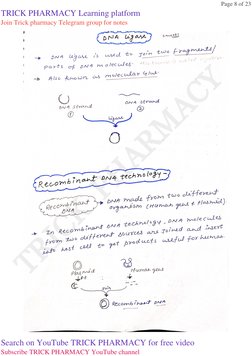 Page 8 of 23
TRICK PHARMACY Learning platform
Join Trick pharmacy Telegram group for notes
DNA ligase
→ DNA ligase is used to join two fragments/
Parts of DNA molecules
→ Also known as molecular glue
DNA strand
①
DNA strand
②
ligase
Recombinant DNA technology -
Recombinant DNA
→ DNA made from two different
organisms (Human gene & Plasmid)
→ In Recombinant DNA technology, DNA molecules
from two different sources are joined and insert
into host cell to get products useful for human
Plasmid
Human gene
join
Recombinant DNA
TRICK PHARMACY
Search on YouTube TRICK PHARMACY for free video
Subscribe TRICK PHARMACY YouTube channel